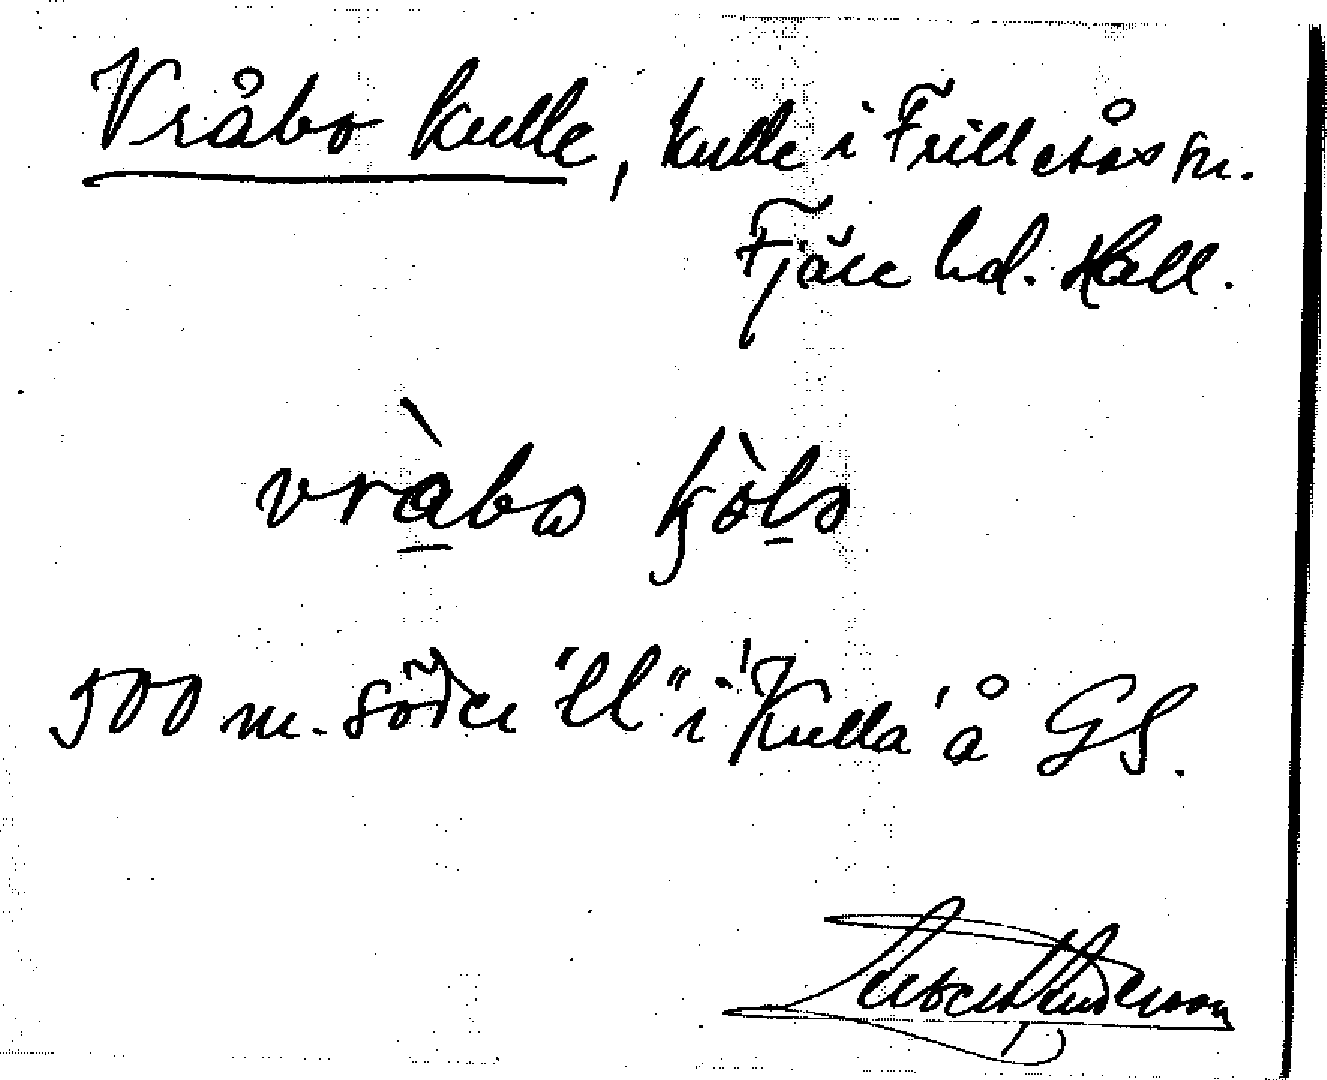 Vråbo kulle, kulle i Frillesås sn.
Fjäre hd. Hall.
500 m. söder "ll" i 'Kulla' å GS.